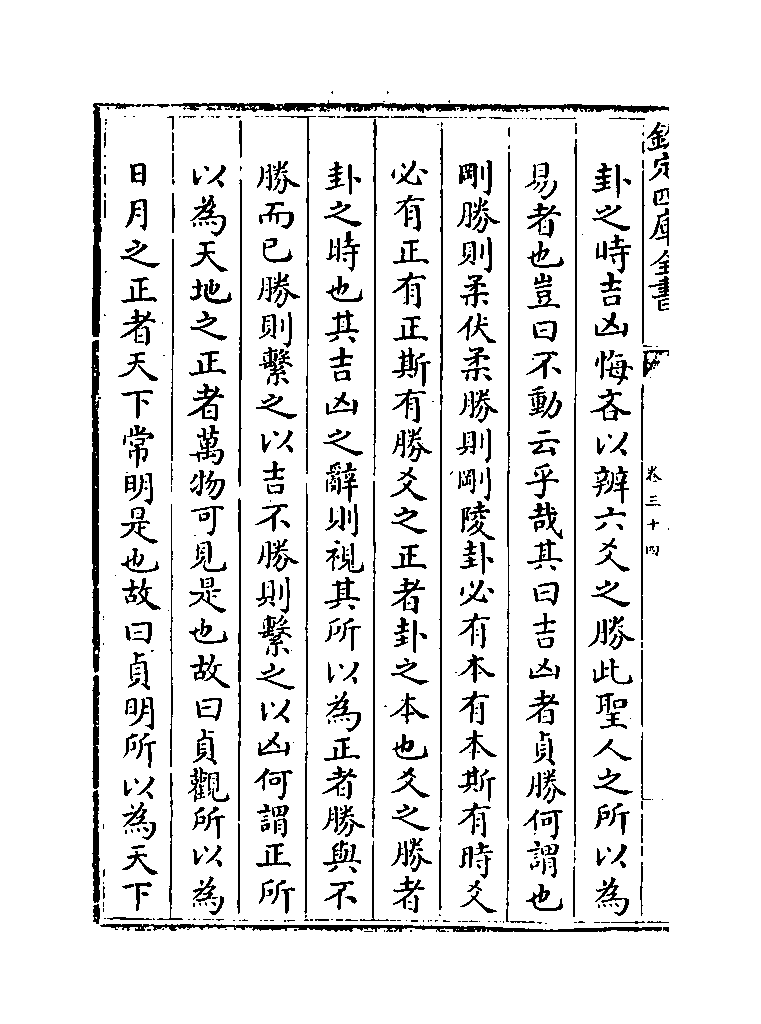 欽定四庫全書
卷三十四
卦之時吉凶悔吝以辨六爻之勝此聖人之所以為
易者也豈曰不動云乎哉其曰吉凶者貞勝何謂也
剛勝則柔伏柔勝則剛陵卦必有本有本斯有時爻
必有正有正斯有勝爻之正者卦之本也爻之勝者
卦之時也其吉凶之辭則視其所以為正者勝與不
勝而已勝則繫之以吉不勝則繫之以凶何謂正所
以為天地之正者萬物可見是也故曰貞觀所以為
日月之正者天下常明是也故曰貞明所以為天下